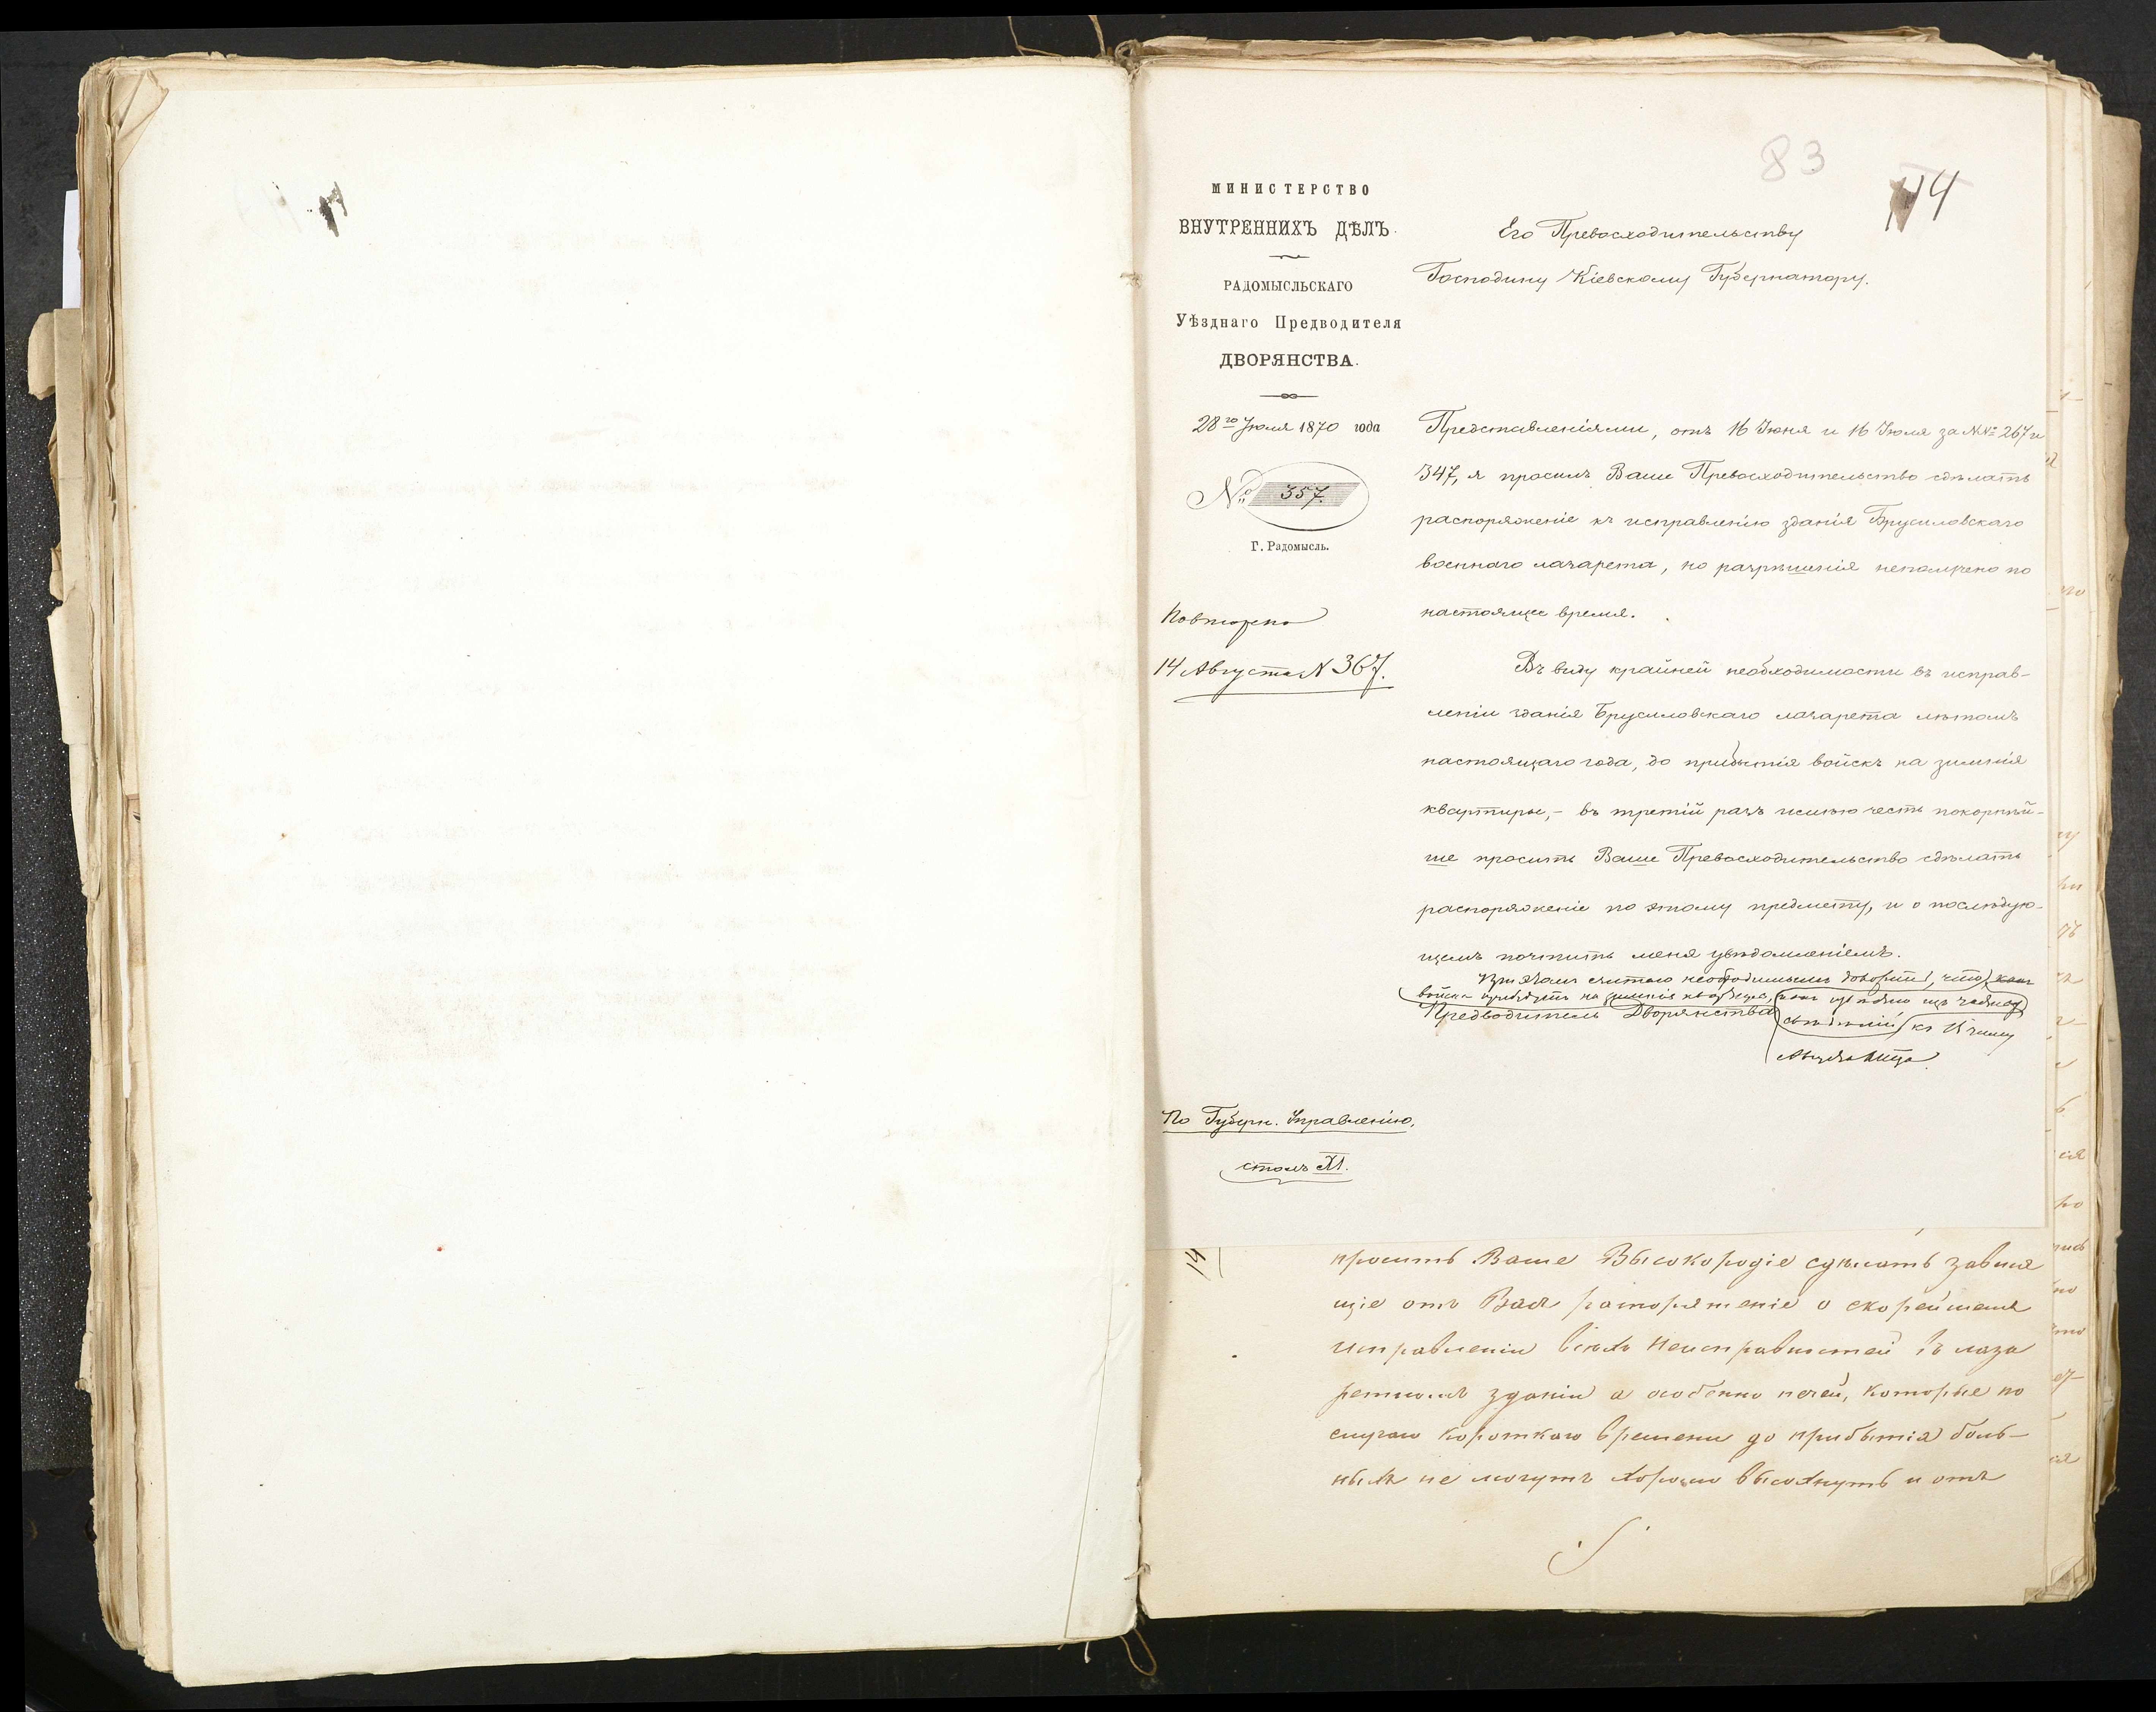 83
114
МИНИСТЕРСТВО
ВНУТРЕННИХЪ ДѢЛЪ.
РАДОМЫСЛЬСКАГО
Уѣзднаго Предводителя
ДВОРЯНСТВА.
28го Іюля 1870 года
№ 357.
Г. Радомысль.
Повторено
14 Августа N 367.
По Губерн. Управленію,
столъ XI.
Его Превосходительству
Господину Кіевскому Губернатору.
Представленіями, отъ 16 Іюня и 16 Іюля за №№ 267 и
347, я просилъ Ваше Превосходительство сдѣлать
распоряженіе къ исправленію зданія Брусиловскаго
военнаго лазарета, но разрѣшенія неполучено по
настоящее время.
Въ виду крайней необходимости въ исправ-
леніи зданія Брусиловскаго лазарета лѣтомъ
настоящаго года, до прибытія войскъ на зимнія
квартиры,- въ третій разъ имѣю честь покорнѣй-
ше просить Ваше Превосходительство сдѣлать
распоряженіе по этому предмету, и о послѣдую-
щемъ почтить меня увѣдомленіемъ.
При этомъ считаю необходимымъ что
войска прибудутъ на зимнія квартиры, изъ
Предводитель Дворянства
свѣдѣній къ 15 числу
просить Ваше Высокородіе сдѣлать завися
щіе отъ Васъ распоряженіе о скорейшемъ
исправленіи всѣхъ неисправностей въ лаза
ретномъ зданіи а особенно печей, которые по
случаю короткаго времени до прибытія боль-
ныхъ не могутъ хорошо высохнуть и отъ